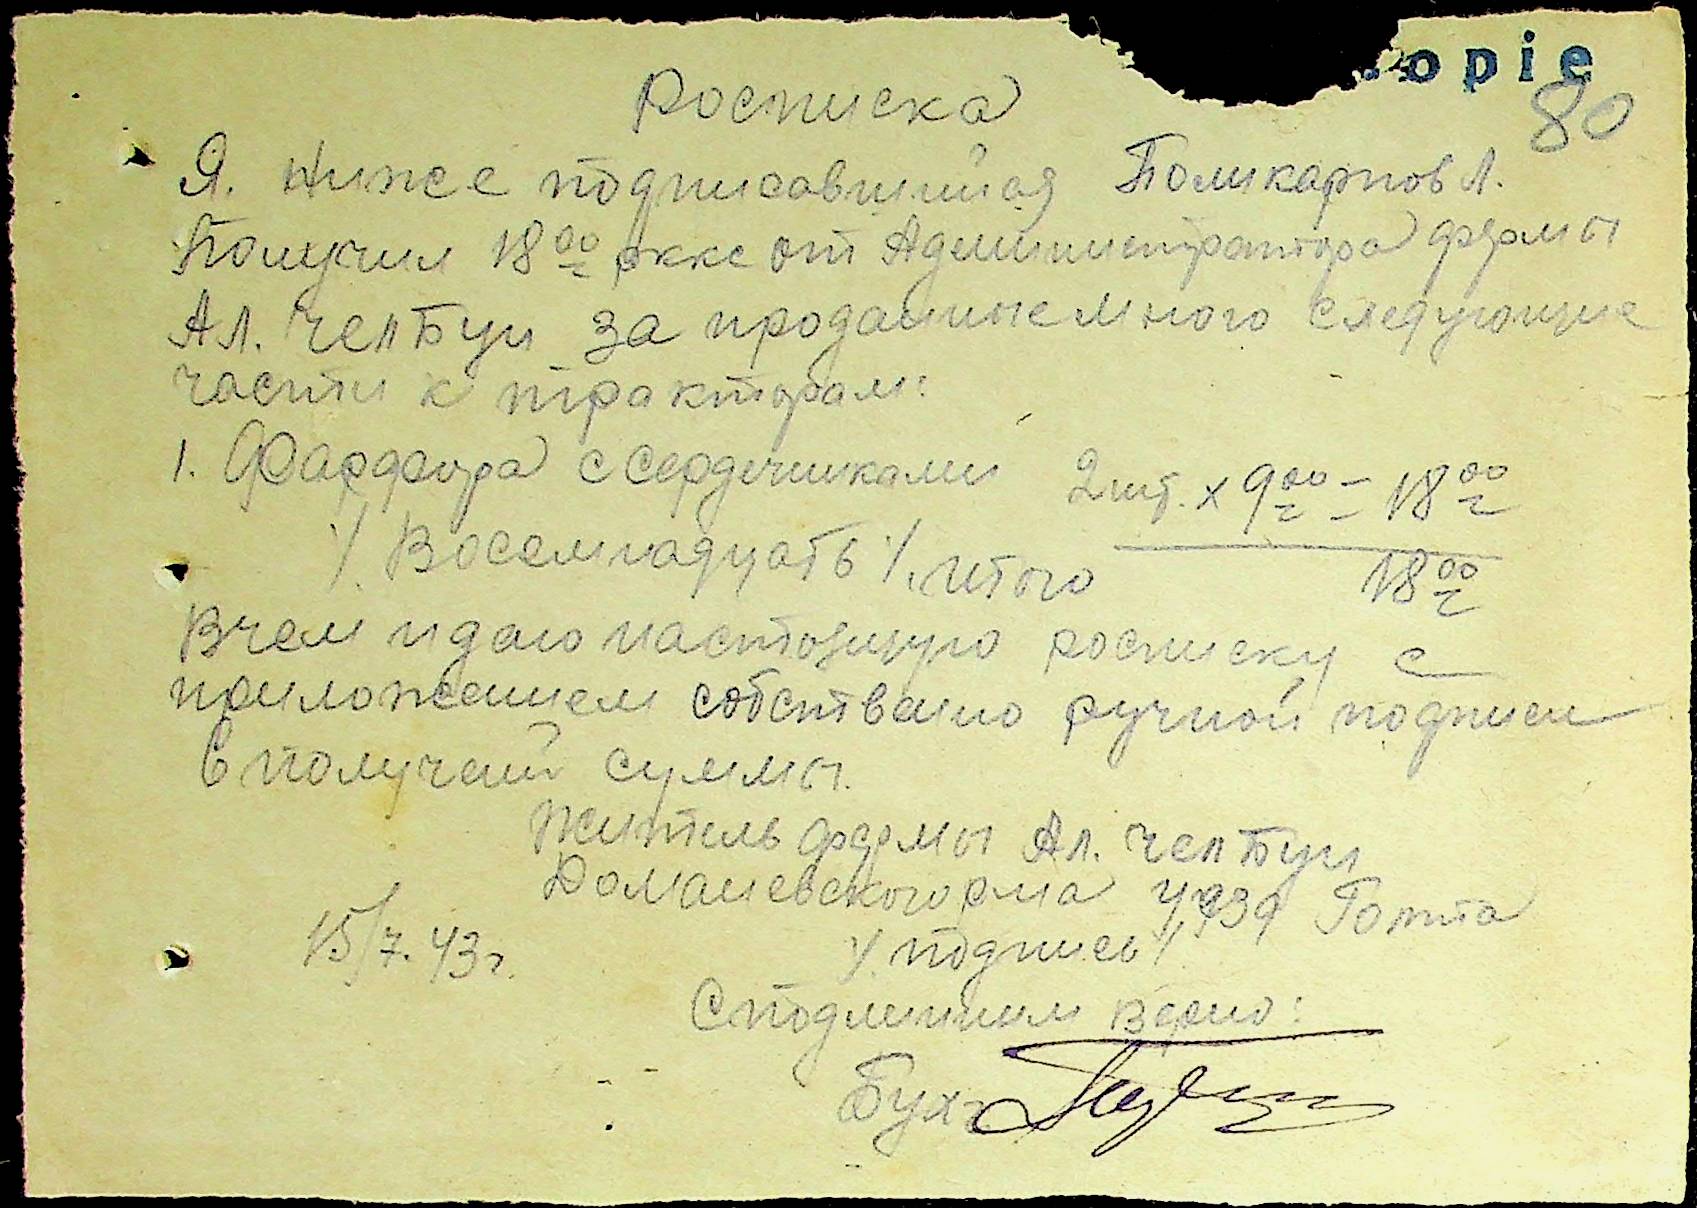 opie
80
Росписка
Я. ниже подписавшийся Поликарпов Л.
Получил 18 00 ркке от Администратора фермы
Ал. Чептуи за проданные много следующие
части к тракторам:
1. Фарфора с сердечниками 2 шт. x 9 00 = 18 00
/. Восемнадцать /. Итого 18 00
В чем и даю настоящую росписку с
приложением собственно ручной подписи
в получений суммы.
Житель фермы Ал. Чептуи
Доманевского р-на уезда Голта
15/7. 43 г. /. подпись /.
С подлинным верно:
Бухг